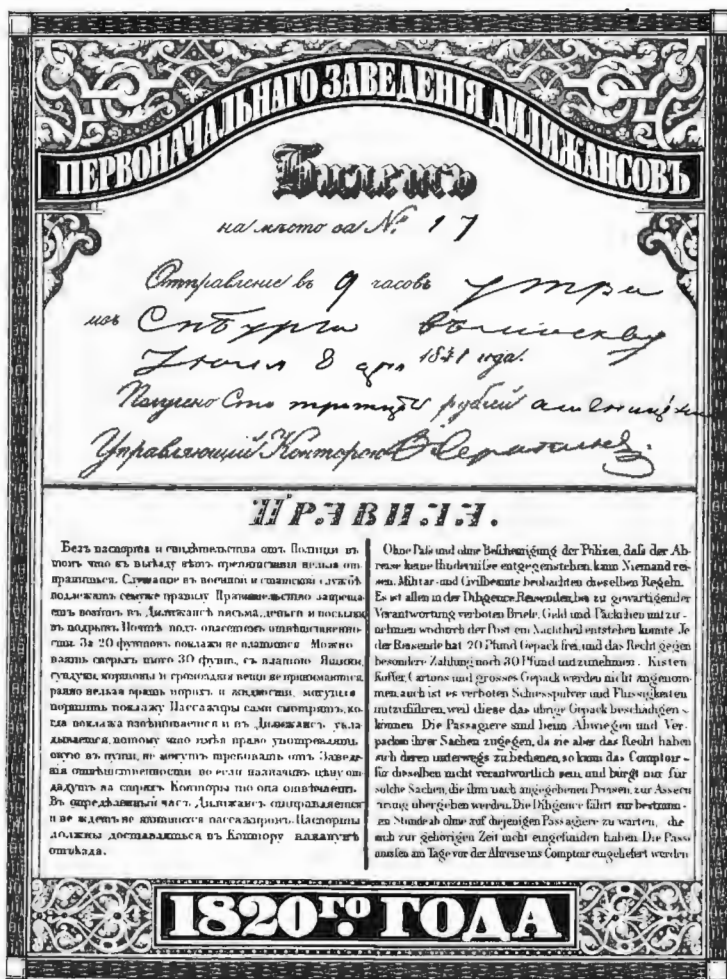 ПЕРВОНАЧАЛЬНАГО ЗАВЕДЕНІЯ ДИЛИЖАНСОВЪ
Билетъ
на мѣсто за № 17
Отправленіе въ 9 часовъ утра
изъ С пбурга въ москву
8 дня 1841 года.
Получено Сто рублей
Управляющій Конторою
ПРАВИЛА.
Безъ паспорта и свидѣтельства отъ Полиціи въ
томъ что къ выѣзду нѣтъ препятствія нельзя от-
правиться. Служащіе въ военной и статской службѣ
подлежатъ сему же правилу. Правительство запреща-
етъ возить въ Дилижансѣ письма, деньги и посылки
въ подрывъ Почтѣ подъ опасеніемъ отвѣтственно-
сти. За 20 фунтовъ поклажи не платится. Можно
взять сверхъ того 30 фунт., съ платою. Ящики,
сундуки, картоны и громоздкія вещи не принимаются,
равно нельзя брать порохъ и жидкости, могущія
портить поклажу. Пассажиры сами смотрятъ, ко-
гда поклажа взвѣшивается и въ Дилижансъ укла-
дывается, потому что имѣя право употреблять
оную въ пути, не могутъ требовать отъ Заведе-
нія отвѣтственности но если назначивъ цѣну от-
дадутъ на страхъ Конторы то она отвѣчаетъ.
Въ опредѣленный часъ Дилижансъ отправляется
и не ждетъ не явившихся пассажировъ. Паспорты
должны доставляться въ Контору наканунѣ
отъѣзда.
Ohne Paß und ohne Bescheinigung der Polizei, daß der Ab-
reise keine Hindernisse entgegenstehen, kann Niemand rei-
sen. Militar- und Civilbeamte beobachten dieselben Regeln.
Es ist allen in der Diligence Reisenden, bei zu gewärtigender
Verantwortung verboten Briefe, Geld und Päckchen mitzu-
nehmen wodurch der Post ein Nachtheil entstehen könnte. Je-
der Reisende hat 20 Pfund Gepäck frei, und das Recht gegen
besondere Zahlung noch 30 Pfund mitzunehmen. Kisten
Koffer, Cartons und grosses Gepäck werden nicht angenom-
men, auch ist es verboten Schiesspulver und Flüssigkeiten
mitzuführen, weil diese das übrige Gepäck beschädigen
können. Die Passagiere sind beim Abwiegen und Ver-
packen ihrer Sachen zugegen, da sie aber das Recht haben
sich deren unterwegs zu bedienen, so kann das Comptoir
für dieselben nicht verantwortlich sein, und bürgt nur für
solche Sachen, die ihm nach angegebenen Preisen, zur Assecu-
rirung übergeben werden. Die Diligence fährt zur bestimm-
en Stunde ab ohne auf diejenigen Passagiere zu warten, die
sich zur gehörigen Zeit nicht eingefunden haben. Die Pässe
müssen am Tage vor der Abreise ins Comptoir eingeliefert werden
1820го ГОДА